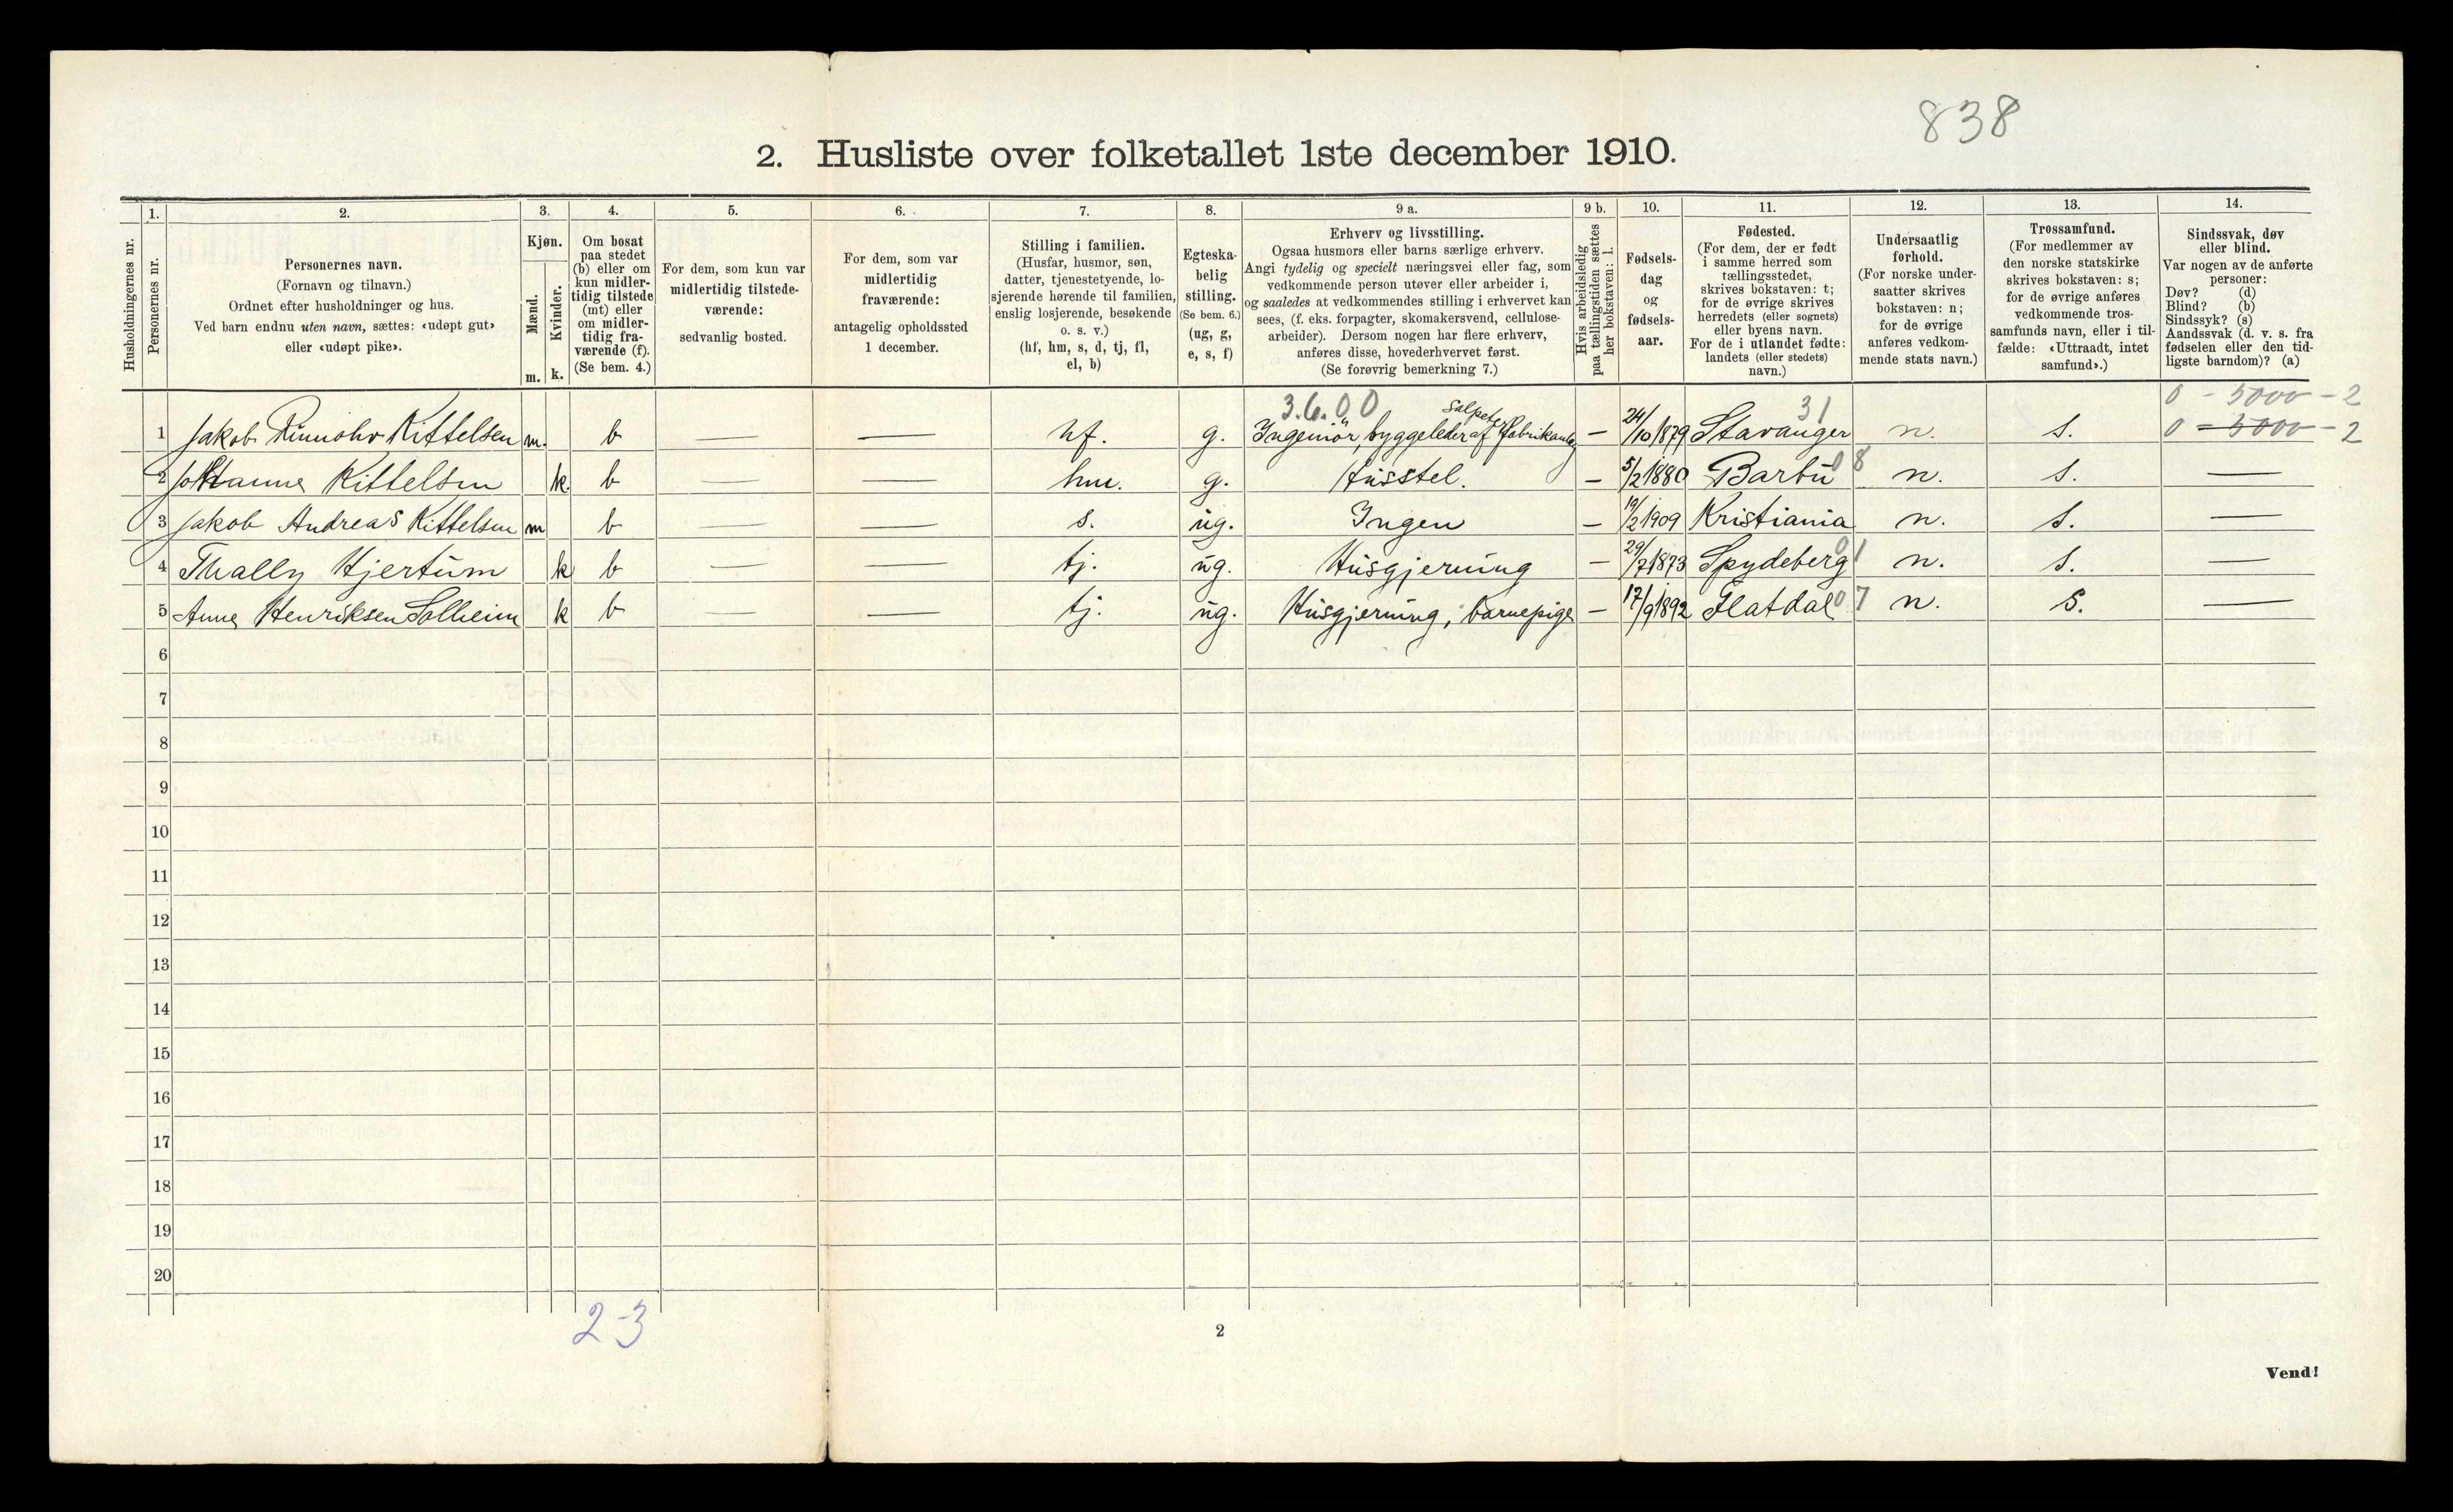 838
2. Husliste over folketallet 1ste december 1910.
Husholdningernes nr.
1.
Personernes nr.
2.
Personernes navn.
(Fornavn og tilnavn.)
Ordnet efter husholdninger og hus.
Ved barn endnu uten navn, sættes: «udøpt gut»
eller «udøpt pike».
3.
Kjøn.
Mænd.
Kvinder.
m. k.
4.
Om bosat
paa stedet
(b) eller om
kun midler-
tidig tilstede
(mt) eller
om midler-
tidig fra-
værende (f).
(Se bem. 4.)
5.
For dem, som kun var
midlertidig tilstede-
værende:
sedvanlig bosted.
6.
For dem, som var
midlertidig
fraværende:
antagelig opholdssted
1 december.
7.
Stilling i familien.
(Husfar, husmor, søn,
datter, tjenestetyende, lo-
sjerende hørende til familien,
enslig losjerende, besøkende
o. s. v.)
(hf, hm, s, d, tj, fl,
el, b)
8.
Egteska-
belig
stilling.
(Se bem. 6.)
(ug, g,
e, s, f)
9 a.
Erhverv og livsstilling.
Ogsaa husmors eller barns særlige erhverv.
Angi tydelig og specielt næringsvei eller fag, som
vedkommende person utøver eller arbeider i,
og saaledes at vedkommendes stilling i erhvervet kan
sees, (f. eks. forpagter, skomakersvend, cellulose-
arbeider). Dersom nogen har flere erhverv,
anføres disse, hovederhvervet først.
(Se forøvrig bemerkning 7.)
9 b.
Hvis arbeidsledig
paa tællingstiden sættes
her bokstaven: l.
10.
Fødsels-
dag
og
fødsels-
aar.
11.
Fødested.
(For dem, der er født
i samme herred som
tællingsstedet,
skrives bokstaven: t;
for de øvrige skrives
herredets (eller sognets)
eller byens navn.
For de i utlandet fødte:
landets (eller stedets)
navn.)
12.
Undersaatlig
forhold.
(For norske under-
saatter skrives
bokstaven: n;
for de øvrige
anføres vedkom-
mende stats navn.)
13.
Trossamfund.
(For medlemmer av
den norske statskirke
skrives bokstaven: s;
for de øvrige anføres
vedkommende tros-
samfunds navn, eller i til-
fælde: «Uttraadt, intet
samfund».)
14.
Sindssvak, døv
eller blind.
Var nogen av de anførte
personer:
Døv? (d)
Blind? (b)
Sindssyk? (s)
Aandssvak (d. v. s. fra
fødselen eller den tid-
ligste barndom)? (a)
3.6.00 31 0 - 5000 - 2
1 Jakob Kittelsen m. b — — hf. g. Ingeniör, byggeleder af Salpeter fabrikanlæg — 24/10 1879 Stavanger n. s. 0 - 5000 - 2
2 Johanne Kittelsen k. b — — hm. g. Husstel. — 5/2 1880 Barbu 08 n. s. —
3 Jakob Andreas Kittelsen m b — — s. ug. Ingen — 19/2 1909 Kristiania n. s. —
4 Thally Hjertum k b — — tj. ug. Husgjerning — 29/7 1873 Spydeberg 01 n. s. —
5 Anne Henriksen Solheim k b — — tj. ug. Husgjerning, barnepige — 17/9 1892 Flatdal 07 n. s. —
6
7
8
9
10
11
12
13
14
15
16
17
18
19
20
2-3
2
Vend!